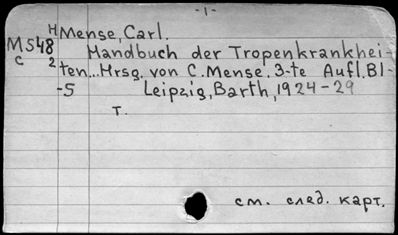 -1-
H Mense, Carl.
M548 Handbuch der Tropenkrankhei-
c 2 ten...Hrsg. von C. Mense. 3-te Aufl. Bl-
-5 Leipzig, Barth, 1924-29
T.
см. след. карт.